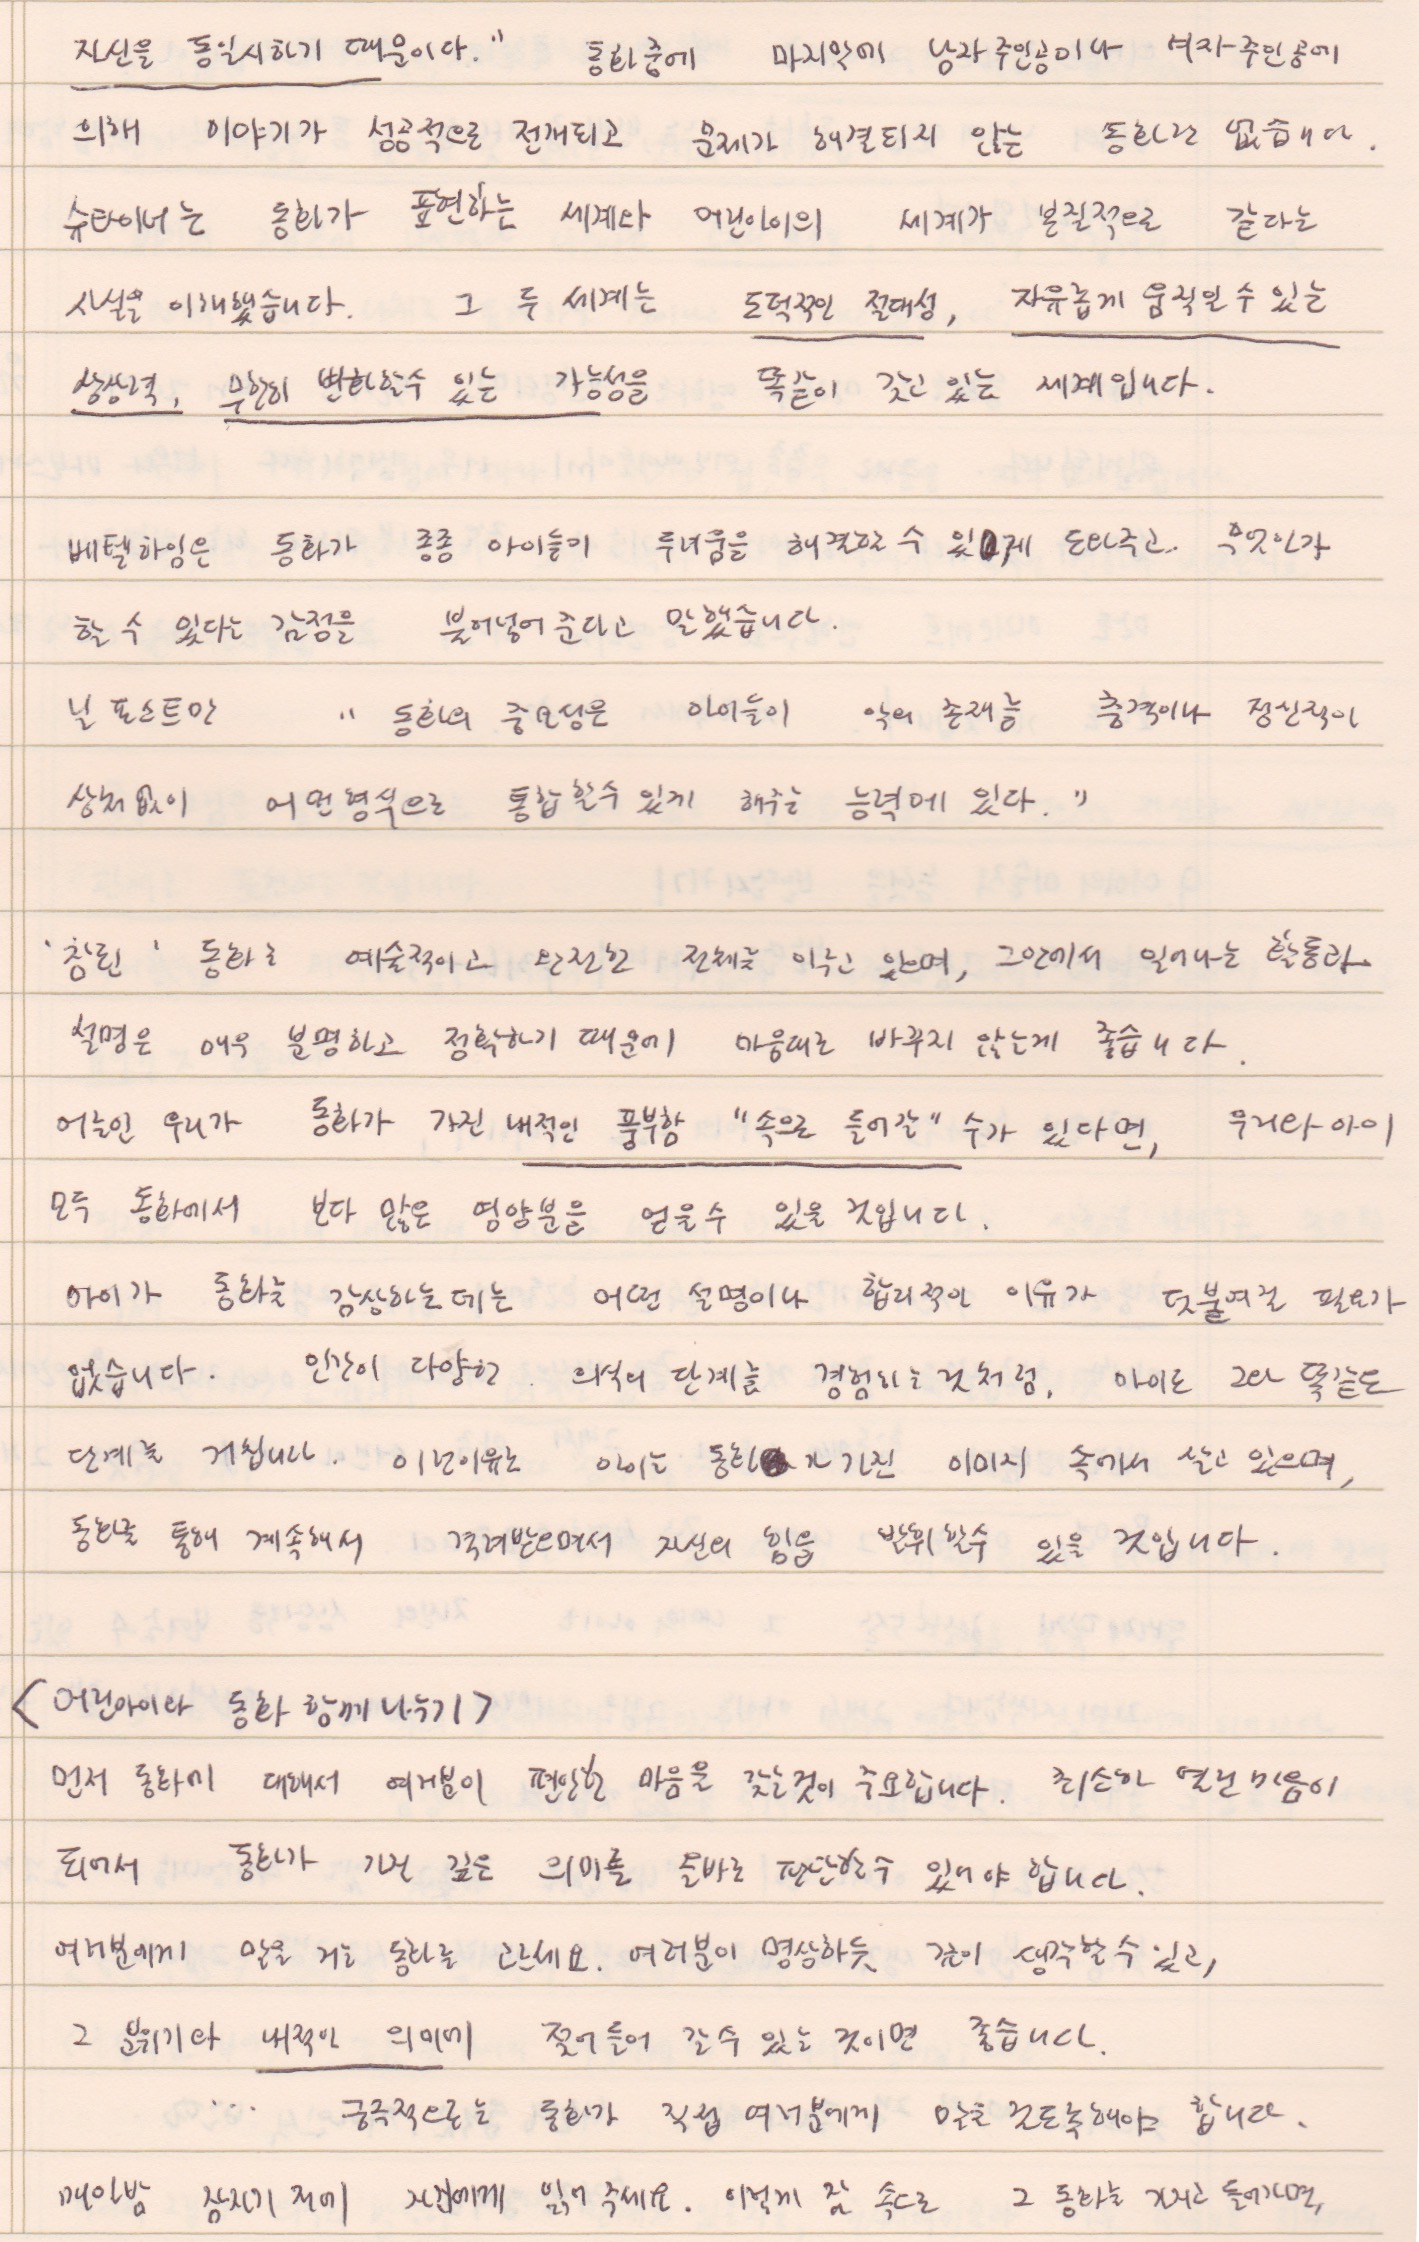 자신을 동일시하기 때문이다." 동화중에 마지막에 남자주인공이나 여자주인공에
의해 이야기가 성공적으로 전개되고 문제가 해결되지 않는 동화란 없습니다.
슈타이너는 동화가 표현하는 세계와 어린아이의 세계가 본질적으로 같다는
사실을 이해했습니다. 그 두 세계는 도덕적인 절대성, 자유롭게 움직일 수 있는
상상력, 무한히 변화할 수 있는 가능성을 똑같이 갖고 있는 세계입니다.
베텔하임은 동화가 종종 아이들이 두려움을 해결할 수 있게 도와주고 무엇인가
할 수 있다는 감정을 불어넣어 준다고 말했습니다.
닐 포스트만 "동화의 중요성은 아이들이 악의 존재를 충격이나 정신적이
상처없이 어떤형식으로 통합할수 있게 해주는 능력에 있다."
'참된' 동화는 예술적이고 완전한 전체를 이루고 있으며, 그안에서 일어나는 활동과
설명은 매우 분명하고 정확하기 때문에 마음대로 바꾸지 않는게 좋습니다.
어른인 우리가 동화가 가진 내적인 풍부함 "속으로 들어갈" 수가 있다면, 우리와 아이
모두 동화에서 보다 많은 영양분을 얻을수 있을 것입니다.
아이가 동화를 감상하는데는 어떤 설명이나 합리적인 이유가 덧붙여질 필요가
없습니다. 인간이 다양한 의식의 단계를 경험하는것처럼, 아이도 그와 똑같은
단계를 거칩니다. 이런이유로 아이는 동화가 가진 이미지 속에서 살고 있으며,
동화를 통해 계속해서 격려받으면서 자신의 힘을 발휘할수 있을 것입니다.
<어린아이와 동화 함께 나누기>
먼저 동화에 대해서 여러분이 편안한 마음을 갖는것이 주요합니다. 최소한 열린마음이
되어서 동화가 가진 깊은 의미를 올바로 판단할수 있어야 합니다.
여러분에게 맞을 거는 동화를 고르세요. 여러분이 명상하듯 깊이 생각할 수 있고,
그 분위기와 내적인 의미에 젖어들어 갈 수 있는 것이면 좋습니다.
... 궁극적으로는 동화가 직접 여러분에게 말을 걸도록해야 합니다.
매일밤 잠자기 전에 자신에게 읽어 주세요. 이렇게 잠 속으로 그 동화를 가지고 들어가면,